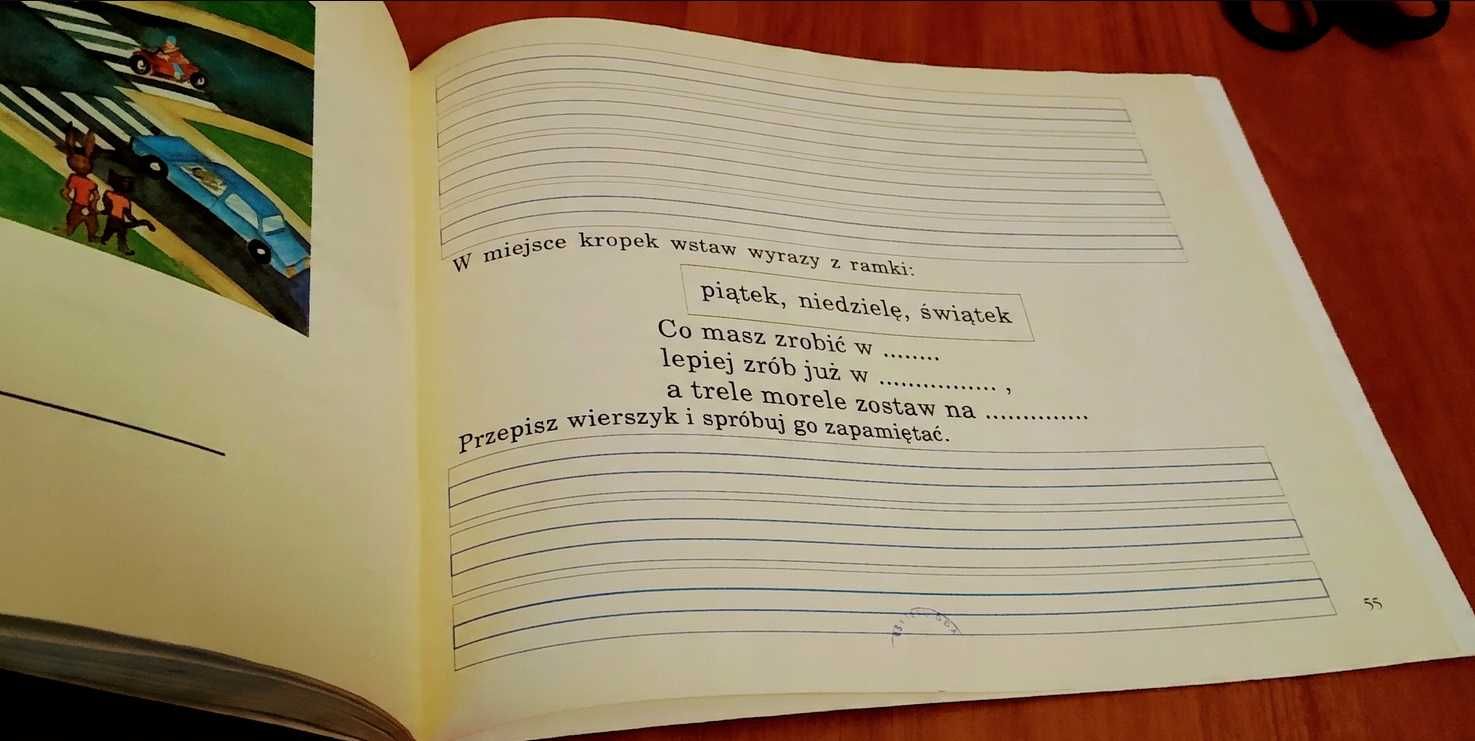 W miejsce kropek wstaw wyrazy z ramki:
piątek, niedzielę, świątek
Co masz zrobić w ........
lepiej zrób już w ................ ,
a trele morele zostaw na ..............
Przepisz wierszyk i spróbuj go zapamiętać.
55